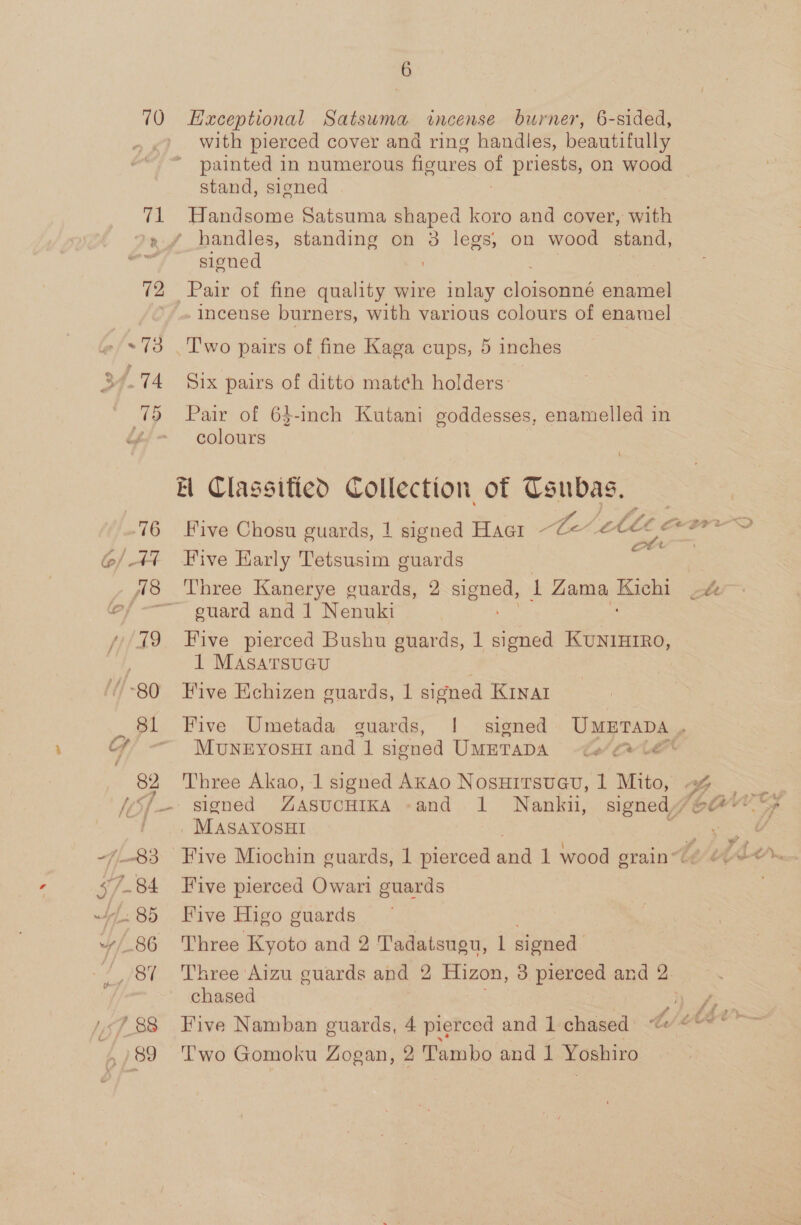 6
70 Exceptional Satsuma incense burner, 6-sided,
with pierced cover and ring handles, beautifully
painted in numerous figures of priests, on wood
stand, signed
71 Handsome Satsuma shaped koro and cover, with
handles, standing on 3 legs, on wood stand,
signed
72 Pair of fine quality wire inlay cloisonné enamel
incense burners, with various colours of enamel
73 Two pairs of fine Kaga cups, 5 inches
74 Six pairs of ditto match holders
75 Pair of 6½-inch Kutani goddesses, enamelled in
colours
A Classified Collection of Tsubas.
76 Five Chosu guards, 1 signed HAGI
77 Five Early Tetsusim guards
78 Three Kanerye guards, 2 signed, 1 Zama Kichi
guard and 1 Nenuki
79 Five pierced Bushu guards, 1 signed KUNIHIRO,
1 MASATSUGU
80 Five Echizen guards, 1 signed KINAI
81 Five Umetada guards, 1 signed UMETADA
MUNEYOSHI and 1 signed UMETADA
82 Three Akao, 1 signed AKAO NOSHITSUGU, 1 Mito,
signed ZASUCHIKA and 1 Nankii, signed
MASAYOSHI
83 Five Miochin guards, 1 pierced and 1 wood grain
84 Five pierced Owari guards
85 Five Higo guards
86 Three Kyoto and 2 Tadatsugu, 1 signed
87 Three Aizu guards and 2 Hizon, 3 pierced and 2
chased
88 Five Namban guards, 4 pierced and 1 chased
89 Two Gomoku Zogan, 2 Tambo and 1 Yoshiro